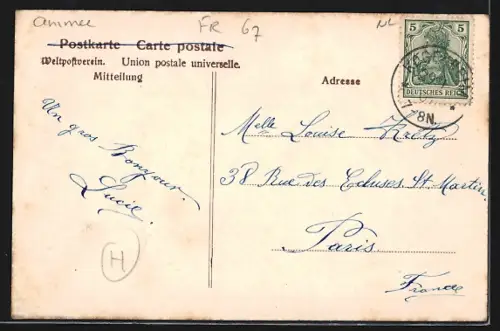 ammee
FR 67
NL
Postkarte Carte postale
Weltpostverein. Union postale universelle.
Mitteilung
Adresse
5 5
DEUTSCHES REICH
8N.
Un gros Bonjour.
Lucie.
Melle Louise Kretz
38 Rue des Ecluses St. Martin.
Paris.
France
H